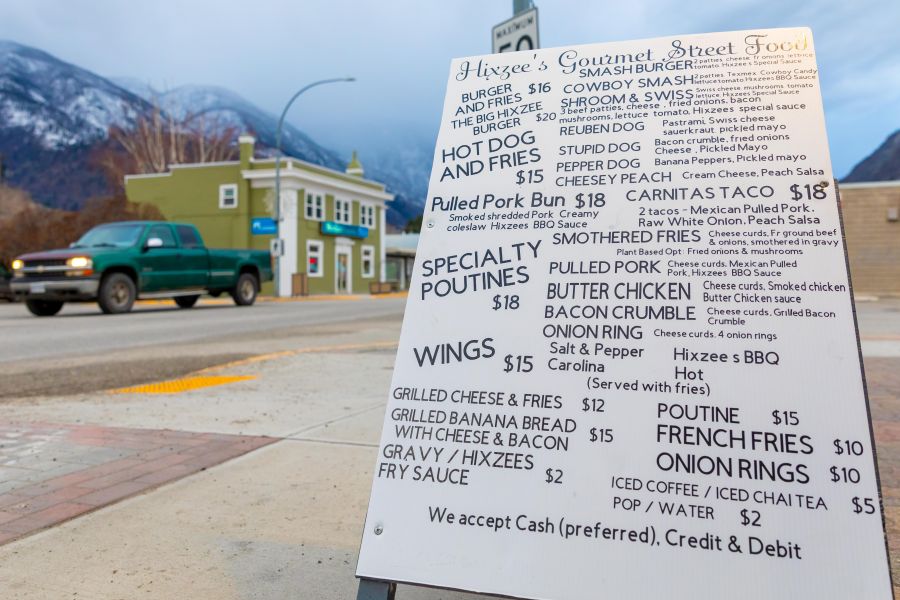 MAXIMUM
50
Hixzee's Gourmet Street Food
BURGER
AND FRIES $16
THE BIG HIXZEE
BURGER $20
SMASH BURGER 2 patties, cheese, fr onions, lettuce
tomato, Hixzee's Special Sauce
COWBOY SMASH 2 patties, Texmex Cowboy Candy
lettuce tomato Hixzees BBQ Sauce
SHROOM & SWISS Swiss cheese mushrooms tomato
lettuce, Hixzees Special Sauce
3 beef patties, cheese, fried onions, bacon
mushrooms, lettuce tomato, Hixzees special sauce
HOT DOG
AND FRIES
$15
REUBEN DOG Pastrami, Swiss cheese
sauerkraut, pickled mayo
STUPID DOG Bacon crumble, fried onions
Cheese, Pickled Mayo
PEPPER DOG Banana Peppers, Pickled mayo
CHEESEY PEACH Cream Cheese, Peach Salsa
Pulled Pork Bun $18
Smoked shredded Pork Creamy
coleslaw Hixzees BBQ Sauce
CARNITAS TACO $18
2 tacos - Mexican Pulled Pork,
Raw White Onion, Peach Salsa
SPECIALTY
POUTINES
$18
SMOTHERED FRIES Cheese curds, Fr ground beef
& onions, smothered in gravy
Plant Based Opt: Fried onions & mushrooms
PULLED PORK Cheese curds, Mexican Pulled
Pork, Hixzees BBQ Sauce
BUTTER CHICKEN Cheese curds, Smoked chicken
Butter Chicken sauce
BACON CRUMBLE Cheese curds, Grilled Bacon
Crumble
ONION RING Cheese curds, 4 onion rings
WINGS $15
Salt & Pepper Hixzee s BBQ
Carolina Hot
(Served with fries)
GRILLED CHEESE & FRIES $12
GRILLED BANANA BREAD
WITH CHEESE & BACON $15
GRAVY / HIXZEES
FRY SAUCE $2
POUTINE $15
FRENCH FRIES $10
ONION RINGS $10
ICED COFFEE / ICED CHAI TEA $5
POP / WATER $2
We accept Cash (preferred), Credit & Debit